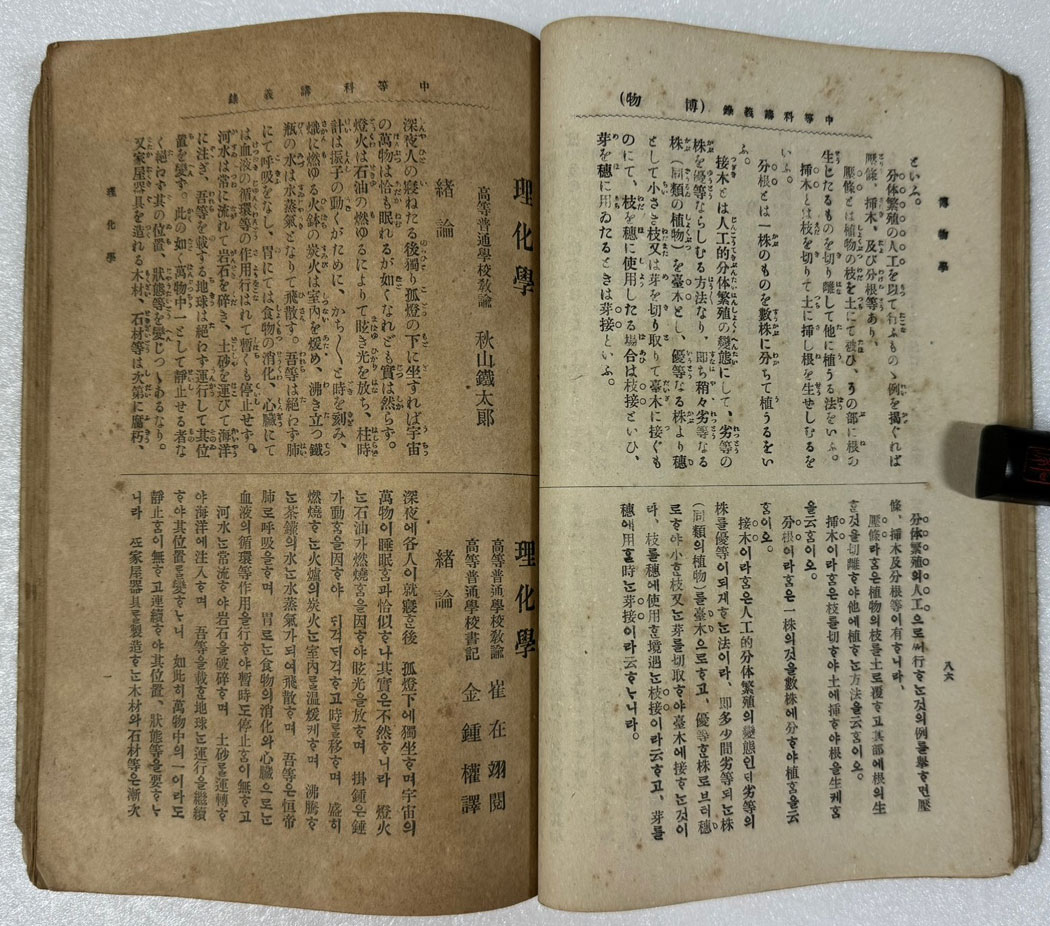 中等科講義錄 (博物)
博物學
八六
といふ。
分体繁殖の人工を以て行ふものゝ例を揭ぐれば
壓條、揷木、及び分根等あり、
壓條とは植物の枝を土にて被ひ、その部に根の
生じたるものを切り離して他に植うる法をいふ。
揷木とは枝を切りて土に揷し根を生ぜしむるを
いふ。
分根とは一株のものを數株に分ちて植うるをい
ふ。
接木とは人工的分体繁殖の變態にして、劣等の
株を優等ならしむる方法なり、卽ち稍々劣等なる
株(同類の植物)を臺木とし、優等なる株より穗
として小さき枝又は芽を切り取りて臺木に接ぐも
のにて、枝を穗に使用したる場合は枝接といひ、
芽を穗に用ゐたるときは芽接といふ。
分体繁殖의人工으로써行ᄒᆞᄂᆞᆫ것의例를擧ᄒᆞ면壓
條、揷木及分根等이有ᄒᆞ니라、
壓條라홈은植物의枝를土로覆ᄒᆞ고其部에根의生
ᄒᆞᆫ것을切離ᄒᆞ야他에植ᄒᆞᄂᆞᆫ方法을云홈이오。
揷木이라홈은枝를切ᄒᆞ야土에揷ᄒᆞ야根을生케홈
을云홈이오。
分根이라홈은一株의것을數株에分ᄒᆞ야植홈을云
홈이오。
接木이라홈은人工的分体繁殖의變態인ᄃᆡ劣等의
株를優等이되게ᄒᆞᄂᆞᆫ法이라、卽多少間劣等되ᄂᆞᆫ株
(同類의植物)를臺木으로ᄒᆞ고、優等ᄒᆞᆫ株로브터穗
로ᄒᆞ야小ᄒᆞᆫ枝又ᄂᆞᆫ芽를切取ᄒᆞ야臺木에接ᄒᆞᄂᆞᆫ것이
라、枝를穗에使用ᄒᆞᆫ境遇ᄂᆞᆫ枝接이라云ᄒᆞ고、芽를
穗에用ᄒᆞᆯ時ᄂᆞᆫ芽接이라云ᄒᆞᄂᆞ니라。
中等科講義錄
理化學
一
理化學
高等普通學校敎諭 秋山鐵太郎
緒論
深夜人の寢ねたる後獨り孤燈の下に坐すれば宇宙
の萬物は恰も眠れるが如くなれども實は然らず。
燈火は石油の燃ゆるによりて眩き光を放ち、柱時
計は振子の動くがために、かち〱と時を刻み、
熾に燃ゆる火鉢の炭火は室內を煖め、沸き立つ鐵
瓶の水は水蒸氣となりて飛散す。吾等は絕わず肺
にて呼吸をなし、胃にては食物の消化、心臟にて
は血液の循環等の作用行はれて暫くも停止せず。
河水は常に流れて岩石を碎き、土砂を運びて海洋
に注ぎ、吾等を載する地球は絕わず運行して其位
置を變ず。此の如く萬物中一として靜止せる者な
く絕わず其の位置、狀態等を變じつゝあるなり。
又家屋器具を造れる木材、石材等は次第に腐朽、
理化學
高等普通學校敎諭 崔在翊閱
高等普通學校書記 金鍾權譯
緒論
深夜에各人이就寢ᄒᆞᆫ後 孤燈下에獨坐ᄒᆞ며宇宙의
萬物이睡眠홈과恰似ᄒᆞ나其實은不然ᄒᆞ니라 燈火
ᄂᆞᆫ石油가燃燒홈을因ᄒᆞ야眩光을放ᄒᆞ며 掛鍾은錘
가動홈을因ᄒᆞ야 되걱되걱ᄒᆞ고時를移ᄒᆞ며 盛히
燃燒ᄒᆞᄂᆞᆫ火爐의炭火ᄂᆞᆫ室內를溫煖케ᄒᆞ며 沸騰ᄒᆞ
ᄂᆞᆫ茶鑵의水ᄂᆞᆫ水蒸氣가되여飛散ᄒᆞ며 吾等은恒常
肺로呼吸을ᄒᆞ며 胃로ᄂᆞᆫ食物의消化와心臟으로ᄂᆞᆫ
血液의循環等作用을行ᄒᆞ야暫時도停止홈이無ᄒᆞ고
河水ᄂᆞᆫ常流ᄒᆞ야岩石을破碎ᄒᆞ며 土砂를運轉ᄒᆞ
야海洋에注入ᄒᆞ며 吾等을載ᄒᆞᆫ地球ᄂᆞᆫ運行을繼續
ᄒᆞ야其位置를變ᄒᆞᄂᆞ니 如此히萬物中의一이라도
靜止홈이無ᄒᆞ고連續ᄒᆞ야其位置、狀態等을變ᄒᆞᄂᆞ
니라 ᄯᅩ家屋器具를製造ᄒᆞᄂᆞᆫ木材와石材等은漸次